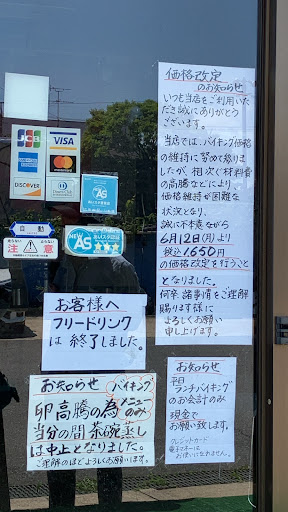 価格改定
のお知らせ
いつも当店をご利用いた
だき誠にありがとう
ございます。
当店では、バイキング価格
の維持に努めて参りま
したが、相次ぐ材料費
の高騰などにより
価格維持が困難な
状況となり、
誠に不本意ながら
6月12日(月)より
税込1,650円
の価格改定を行うこと
となりました。
何卒 諸事情をご理解
賜ります様に
よろしくお願い
申し上げます。
JCB
VISA
AMERICAN EXPRESS
MasterCard
DISCOVER
AS
自動
注意
NEW
AS
お客様へ
フリードリンク
は 終了しました。
お知らせ バイキング
メニュー
のみ
卵高騰の為
当分の間 茶碗蒸し
は中止となりました。
ご理解のほどよろしくお願いします。
お知らせ
平日
ランチバイキング
のお会計のみ
現金で
お願い致します。
クレジットカード
電子マネーは
お使いになれません。